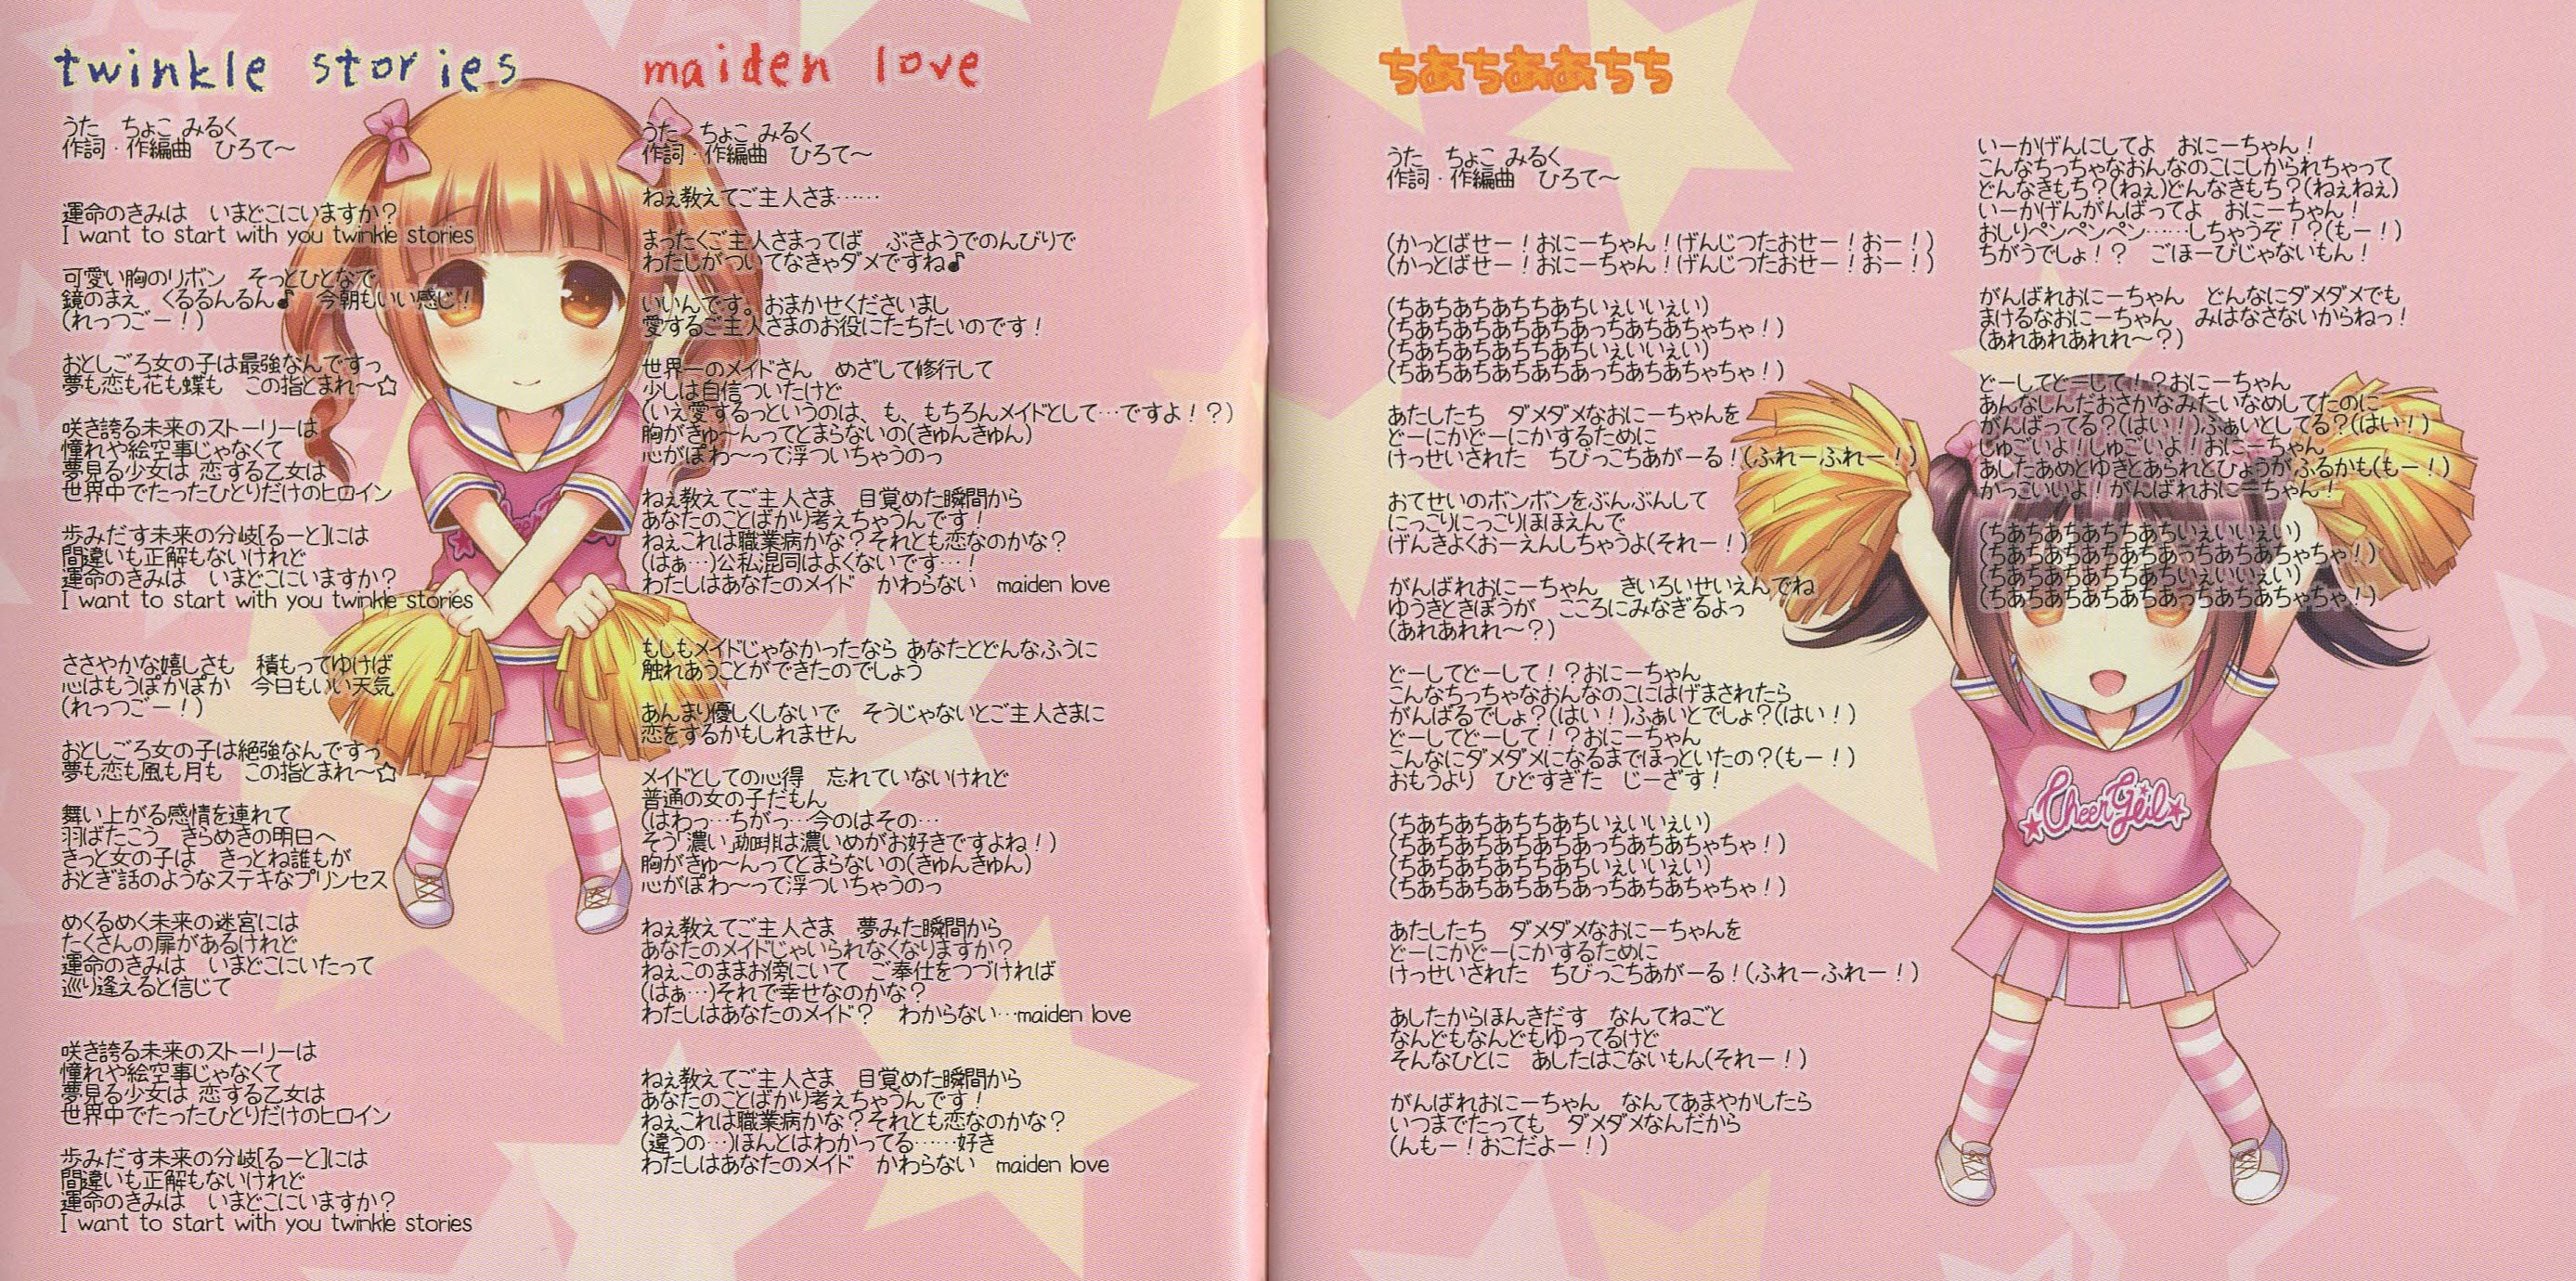 twinkle stories
うた　ちょこ みるく
作詞・作編曲　ひろて〜
運命のきみは　いまどこにいますか？
I want to start with you twinkle stories
可愛い胸のリボン　そっとひとなで
鏡のまえ　くるるんるん♪　今朝もいい感じ！
(れっつごー！)
おとしごろ女の子は最強なんですっ
夢も恋も花も蝶も　この指とまれ〜☆
咲き誇る未来のストーリーは
憧れや絵空事じゃなくて
夢見る少女は 恋する乙女は
世界中でたったひとりだけのヒロイン
歩みだす未来の分岐[るーと]には
間違いも正解もないけれど
運命のきみは　いまどこにいますか？
I want to start with you twinkle stories
ささやかな嬉しさも　積もってゆけば
心はもうぽかぽか　今日もいい天気
(れっつごー！)
おとしごろ女の子は絶強なんですっ
夢も恋も風も月も　この指とまれ〜☆
舞い上がる感情を連れて
羽ばたこう　きらめきの明日へ
きっと女の子は　きっとね誰もが
おとぎ話のようなステキなプリンセス
めくるめく未来の迷宮には
たくさんの扉があるけれど
運命のきみは　いまどこにいたって
巡り逢えると信じて
咲き誇る未来のストーリーは
憧れや絵空事じゃなくて
夢見る少女は 恋する乙女は
世界中でたったひとりだけのヒロイン
歩みだす未来の分岐[るーと]には
間違いも正解もないけれど
運命のきみは　いまどこにいますか？
I want to start with you twinkle stories
maiden love
うた　ちょこ みるく
作詞・作編曲　ひろて〜
ねぇ教えてご主人さま……
まったくご主人さまってば　ぶきようでのんびりで
わたしがついてなきゃダメですね♪
いいんです。おまかせくださいまし
愛するご主人さまのお役にたちたいのです！
世界一のメイドさん　めざして修行して
少しは自信ついたけど
(いぇ愛するっというのは、も、もちろんメイドとして…ですよ！？)
胸がきゅ〜んってとまらないの(きゅんきゅん)
心がぽわ〜って浮ついちゃうのっ
ねぇ教えてご主人さま　目覚めた瞬間から
あなたのことばかり考えちゃうんです！
ねぇこれは職業病かな？それとも恋なのかな？
(はぁ…)公私混同はよくないです…！
わたしはあなたのメイド　かわらない　maiden love
もしもメイドじゃなかったなら あなたとどんなふうに
触れあうことができたのでしょう
あんまり優しくしないで　そうじゃないとご主人さまに
恋をするかもしれません
メイドとしての心得　忘れていないけれど
普通の女の子だもん
(はわっ…ちがっ…今のはその…
そう「濃い」珈琲は濃いめがお好きですよね！)
胸がきゅ〜んってとまらないの(きゅんきゅん)
心がぽわ〜って浮ついちゃうのっ
ねぇ教えてご主人さま　夢みた瞬間から
あなたのメイドじゃいられなくなりますか？
ねぇこのままお傍にいて　ご奉仕をつづければ
(はぁ…)それで幸せなのかな？
わたしはあなたのメイド？　わからない…maiden love
ねぇ教えてご主人さま　目覚めた瞬間から
あなたのことばかり考えちゃうんです！
ねぇこれは職業病かな？それとも恋なのかな？
(違うの…)ほんとはわかってる……好き
わたしはあなたのメイド　かわらない　maiden love
ちあちああちち
うた　ちょこ みるく
作詞・作編曲　ひろて〜
(かっとばせー！おにーちゃん！げんじつたおせー！おー！)
(かっとばせー！おにーちゃん！げんじつたおせー！おー！)
(ちあちあちあちちあちいぇいいぇい)
(ちあちあちあちあちあっちあちあちゃちゃ！)
(ちあちあちあちちあちいぇいいぇい)
(ちあちあちあちあちあっちあちあちゃちゃ！)
あたしたち　ダメダメなおにーちゃんを
どーにかどーにかするために
けっせいされた　ちびっこちあがーる！(ふれーふれー！)
おてせいのボンボンをぶんぶんして
にっこりにっこりほほえんで
げんきよくおーえんしちゃうよ(それー！)
がんばれおにーちゃん　きいろいせいえんでね
ゆうきときぼうが　こころにみなぎるよっ
(あれあれれ〜？)
どーしてどーして！？おにーちゃん
こんなちっちゃなおんなのこにはげまされたら
がんばるでしょ？(はい！)ふぁいとでしょ？(はい！)
どーしてどーして！？おにーちゃん
こんなにダメダメになるまでほっといたの？(もー！)
おもうより　ひどすぎた　じーざす！
(ちあちあちあちちあちいぇいいぇい)
(ちあちあちあちあちあっちあちあちゃちゃ！)
(ちあちあちあちちあちいぇいいぇい)
(ちあちあちあちあちあっちあちあちゃちゃ！)
あたしたち　ダメダメなおにーちゃんを
どーにかどーにかするために
けっせいされた　ちびっこちあがーる！(ふれーふれー！)
あしたからほんきだす　なんてねごと
なんどもなんどもゆってるけど
そんなひとに　あしたはこないもん(それー！)
がんばれおにーちゃん　なんてあまやかしたら
いつまでたっても　ダメダメなんだから
(んもー！おこだよー！)
いーかげんにしてよ　おにーちゃん！
こんなちっちゃなおんなのこにしかられちゃって
どんなきもち？(ねぇ)どんなきもち？(ねぇねぇ)
いーかげんがんばってよ　おにーちゃん！
おしりペンペンペン……しちゃうぞ！？(もー！)
ちがうでしょ！？　ごほーびじゃないもん！
がんばれおにーちゃん　どんなにダメダメでも
まけるなおにーちゃん　みはなさないからねっ！
(あれあれあれれ〜？)
どーしてどーして！？おにーちゃん
あんなしんだおさかなみたいなめしてたのに
がんばってる？(はい！)ふぁいとしてる？(はい！)
しゅごいよ！しゅごいよ！おにーちゃん
あしたあめとゆきとあられとひょうがふるかも(もー！)
かっこいいよ！がんばれおにーちゃん！
(ちあちあちあちちあちいぇいいぇい)
(ちあちあちあちあちあっちあちあちゃちゃ！)
(ちあちあちあちちあちいぇいいぇい)
(ちあちあちあちあちあっちあちあちゃちゃ！)
Cheer Girl